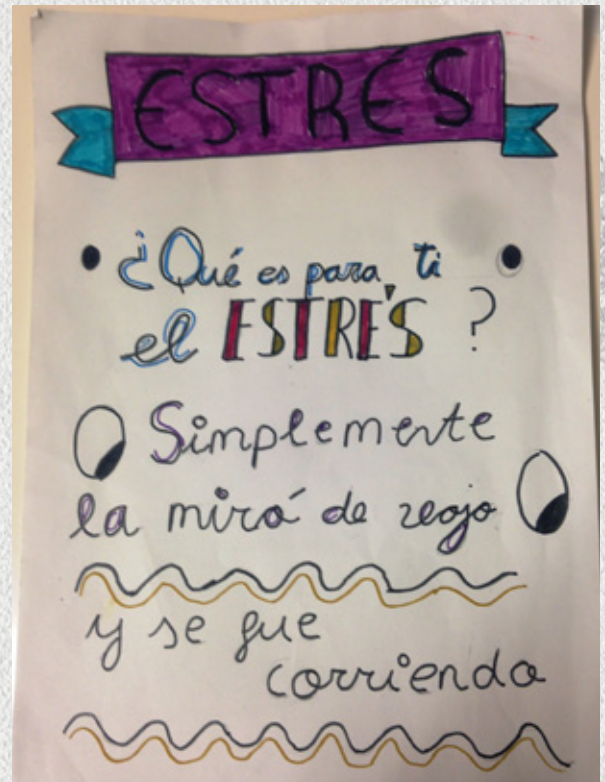 ESTRÉS
¿Qué es para ti
el ESTRÉS ?
Simplemente
la miró de reojo
y se fue
corriendo